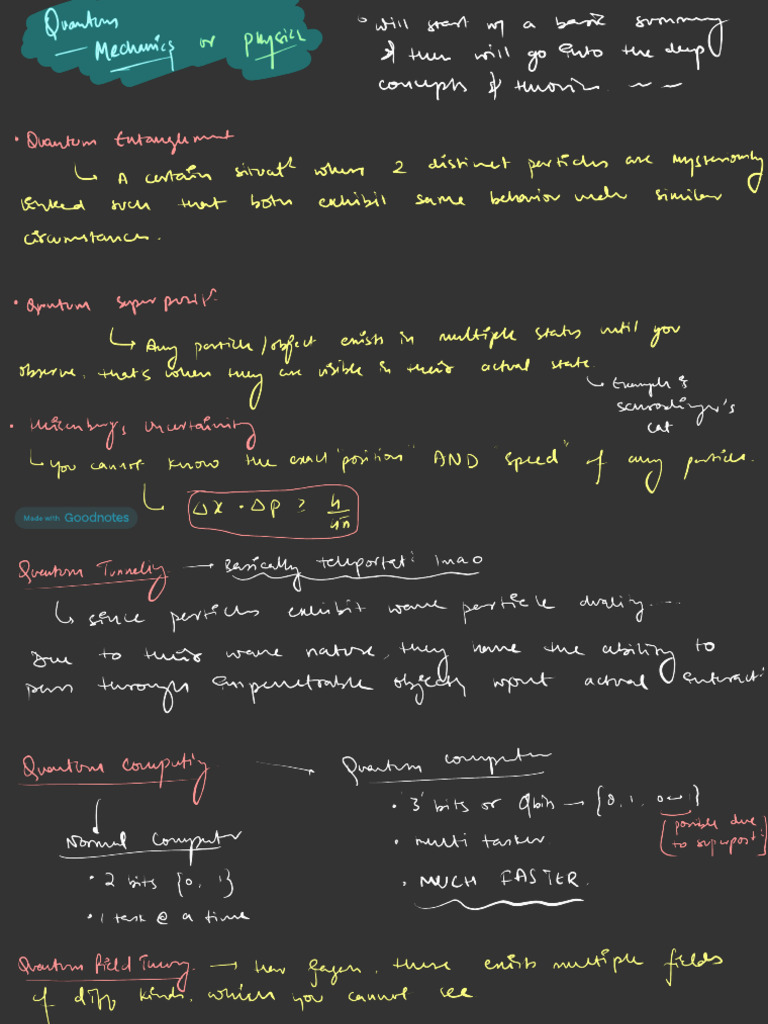 Quantum
Mechanics or Physics
• will start w/ a basic summary
& then will go into the deep
concepts & theories. ~ ~
• Quantum Entanglement
↳ A certain situatⁿ where 2 distinct particles are mysteriously
linked such that both exhibit same behavior under similar
circumstances.
• Quantum superposition
↳ Any particle/object exists in multiple states until you
observe, that's when they are visible in their actual state.
↳ Example is
schrodinger's
cat
• Heisenberg's Uncertainity
↳ you cannot know the exact "position" AND "speed" of any particle.
↳ Δx · Δp ≥ h/4π
Made with Goodnotes
Quantum Tunnelling → Basically teleportatⁿ lmao
↳ since particles exhibit wave particle duality....
Due to their wave nature, they have the ability to
pass through impenetrable objects w/out actual interactⁿ
Quantum computing → Quantum computer
• '3' bits or Qbits → {0, 1, 0↔1}
(possible due
to superposⁿ)
• multi tasker
• MUCH FASTER.
Normal Computer
• 2 bits {0, 1}
• 1 task @ a time
Quantum Field Theory → there exists multiple fields
of diff kinds, which you cannot see